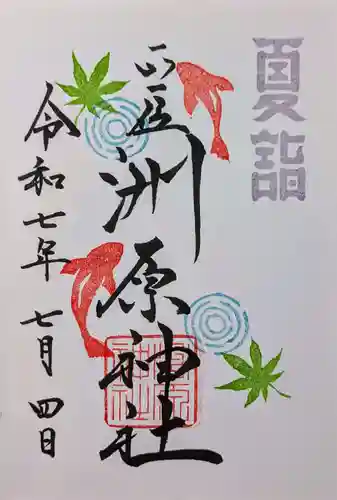 夏詣
洲原神社
令和七年 七月 四日